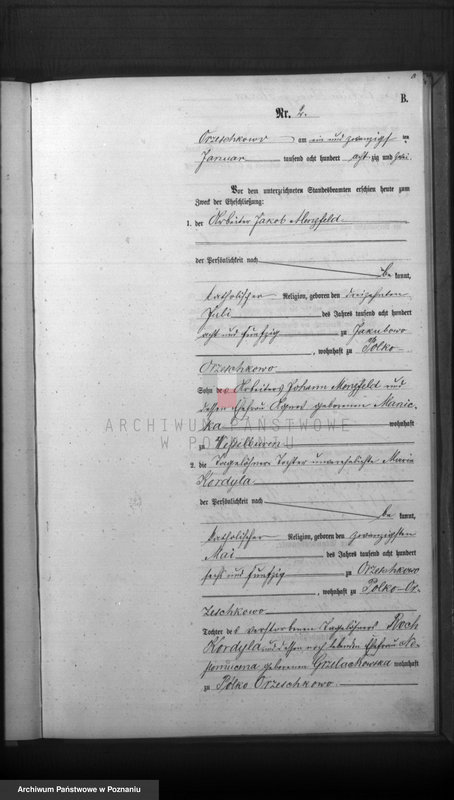 B.
Nr. 2.
Orzeschkowo am ein und zwanzigsten
Januar tausend acht hundert achtzig und zwei
Vor dem unterzeichneten Standesbeamten erschien heute zum
Zweck der Eheschließung:
1. der Arbeiter Jakob
der Persönlichkeit nach
be kannt,
katholischer Religion, geboren den dreizehnten
Juli des Jahres tausend acht hundert
acht und fünfzig zu Jakubowo
, wohnhaft zu Polko-
Orzeschkowo
Sohn des Arbeiters Johann und
dessen Ehefrau Agnes geborenen
wohnhaft
zu
2. die Tagelöhner Tochter unverehelichte Maria
Kordyla
der Persönlichkeit nach
be kannt,
katholischer Religion, geboren den zwanzigsten
Mai des Jahres tausend acht hundert
sechs und fünfzig zu Orzeschkowo
, wohnhaft zu Polko-Or-
zeschkowo
Tochter des verstorbenen Tagelöhners Roch
Kordyla und dessen noch lebenden Ehefrau Ne-
pomucena geborenen Grzelachowska wohnhaft
zu Polko Orzeschkowo.
ARCHIWUM PAŃSTWOWE
W POZNANIU
Archiwum Państwowe w Poznaniu